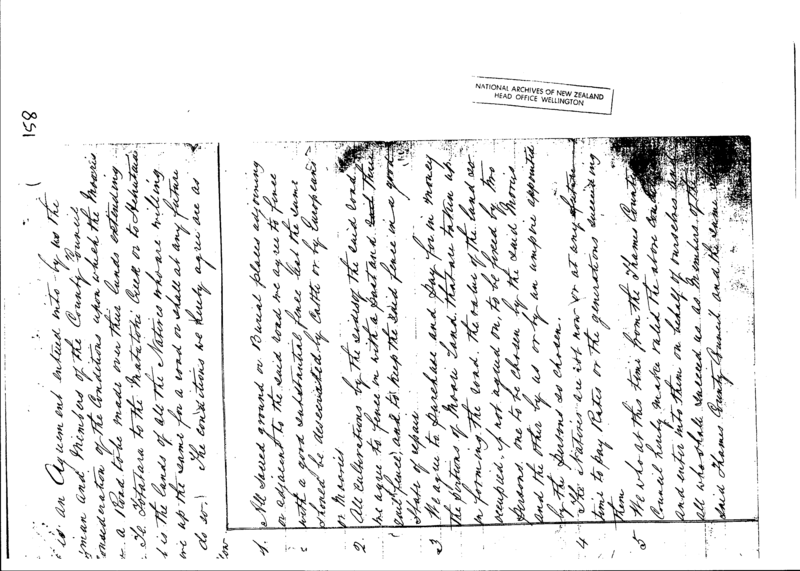 NATIONAL ARCHIVES OF NEW ZEALAND
HEAD OFFICE WELLINGTON
158
is an Agreement entered into by us the
man and Members of the County Council
onsideration of the Conditions upon which the Maoris
a Road to be made over their lands extending
to the MataTori Creek or to
is the lands of all the Natives who are willing
up the same for a road or shall at any future
do so. The conditions we hereby agree are as
ow
1. All sacred ground or Burial places adjoining
or adjacent to the said road we agree to fence
with a good substantial fence lest the same
should be desecrated by Cattle or by Europeans
or Maoris
2. All Cultivations by the sides of the said road
we agree to fence in with a and
fence and to keep the said fence in a good
State of repair
3 We agree to purchase and pay for in money
the portions of Maori Land that are taken up
in forming the road. the value of the land so
occupied if not agreed on to be fixed by two
persons, one to be chosen by the said Maoris
and the other by us or by an umpire appointed
by the persons so chosen.
4 The Natives are not now or at any future
time to pay Rates or the generations succeeding
them
5 We who at this time from the Thames County
Council hereby make valid the above
and enter into them on behalf of ourselves and
all who shall succeed us as Members of the
said Thames County Council and the